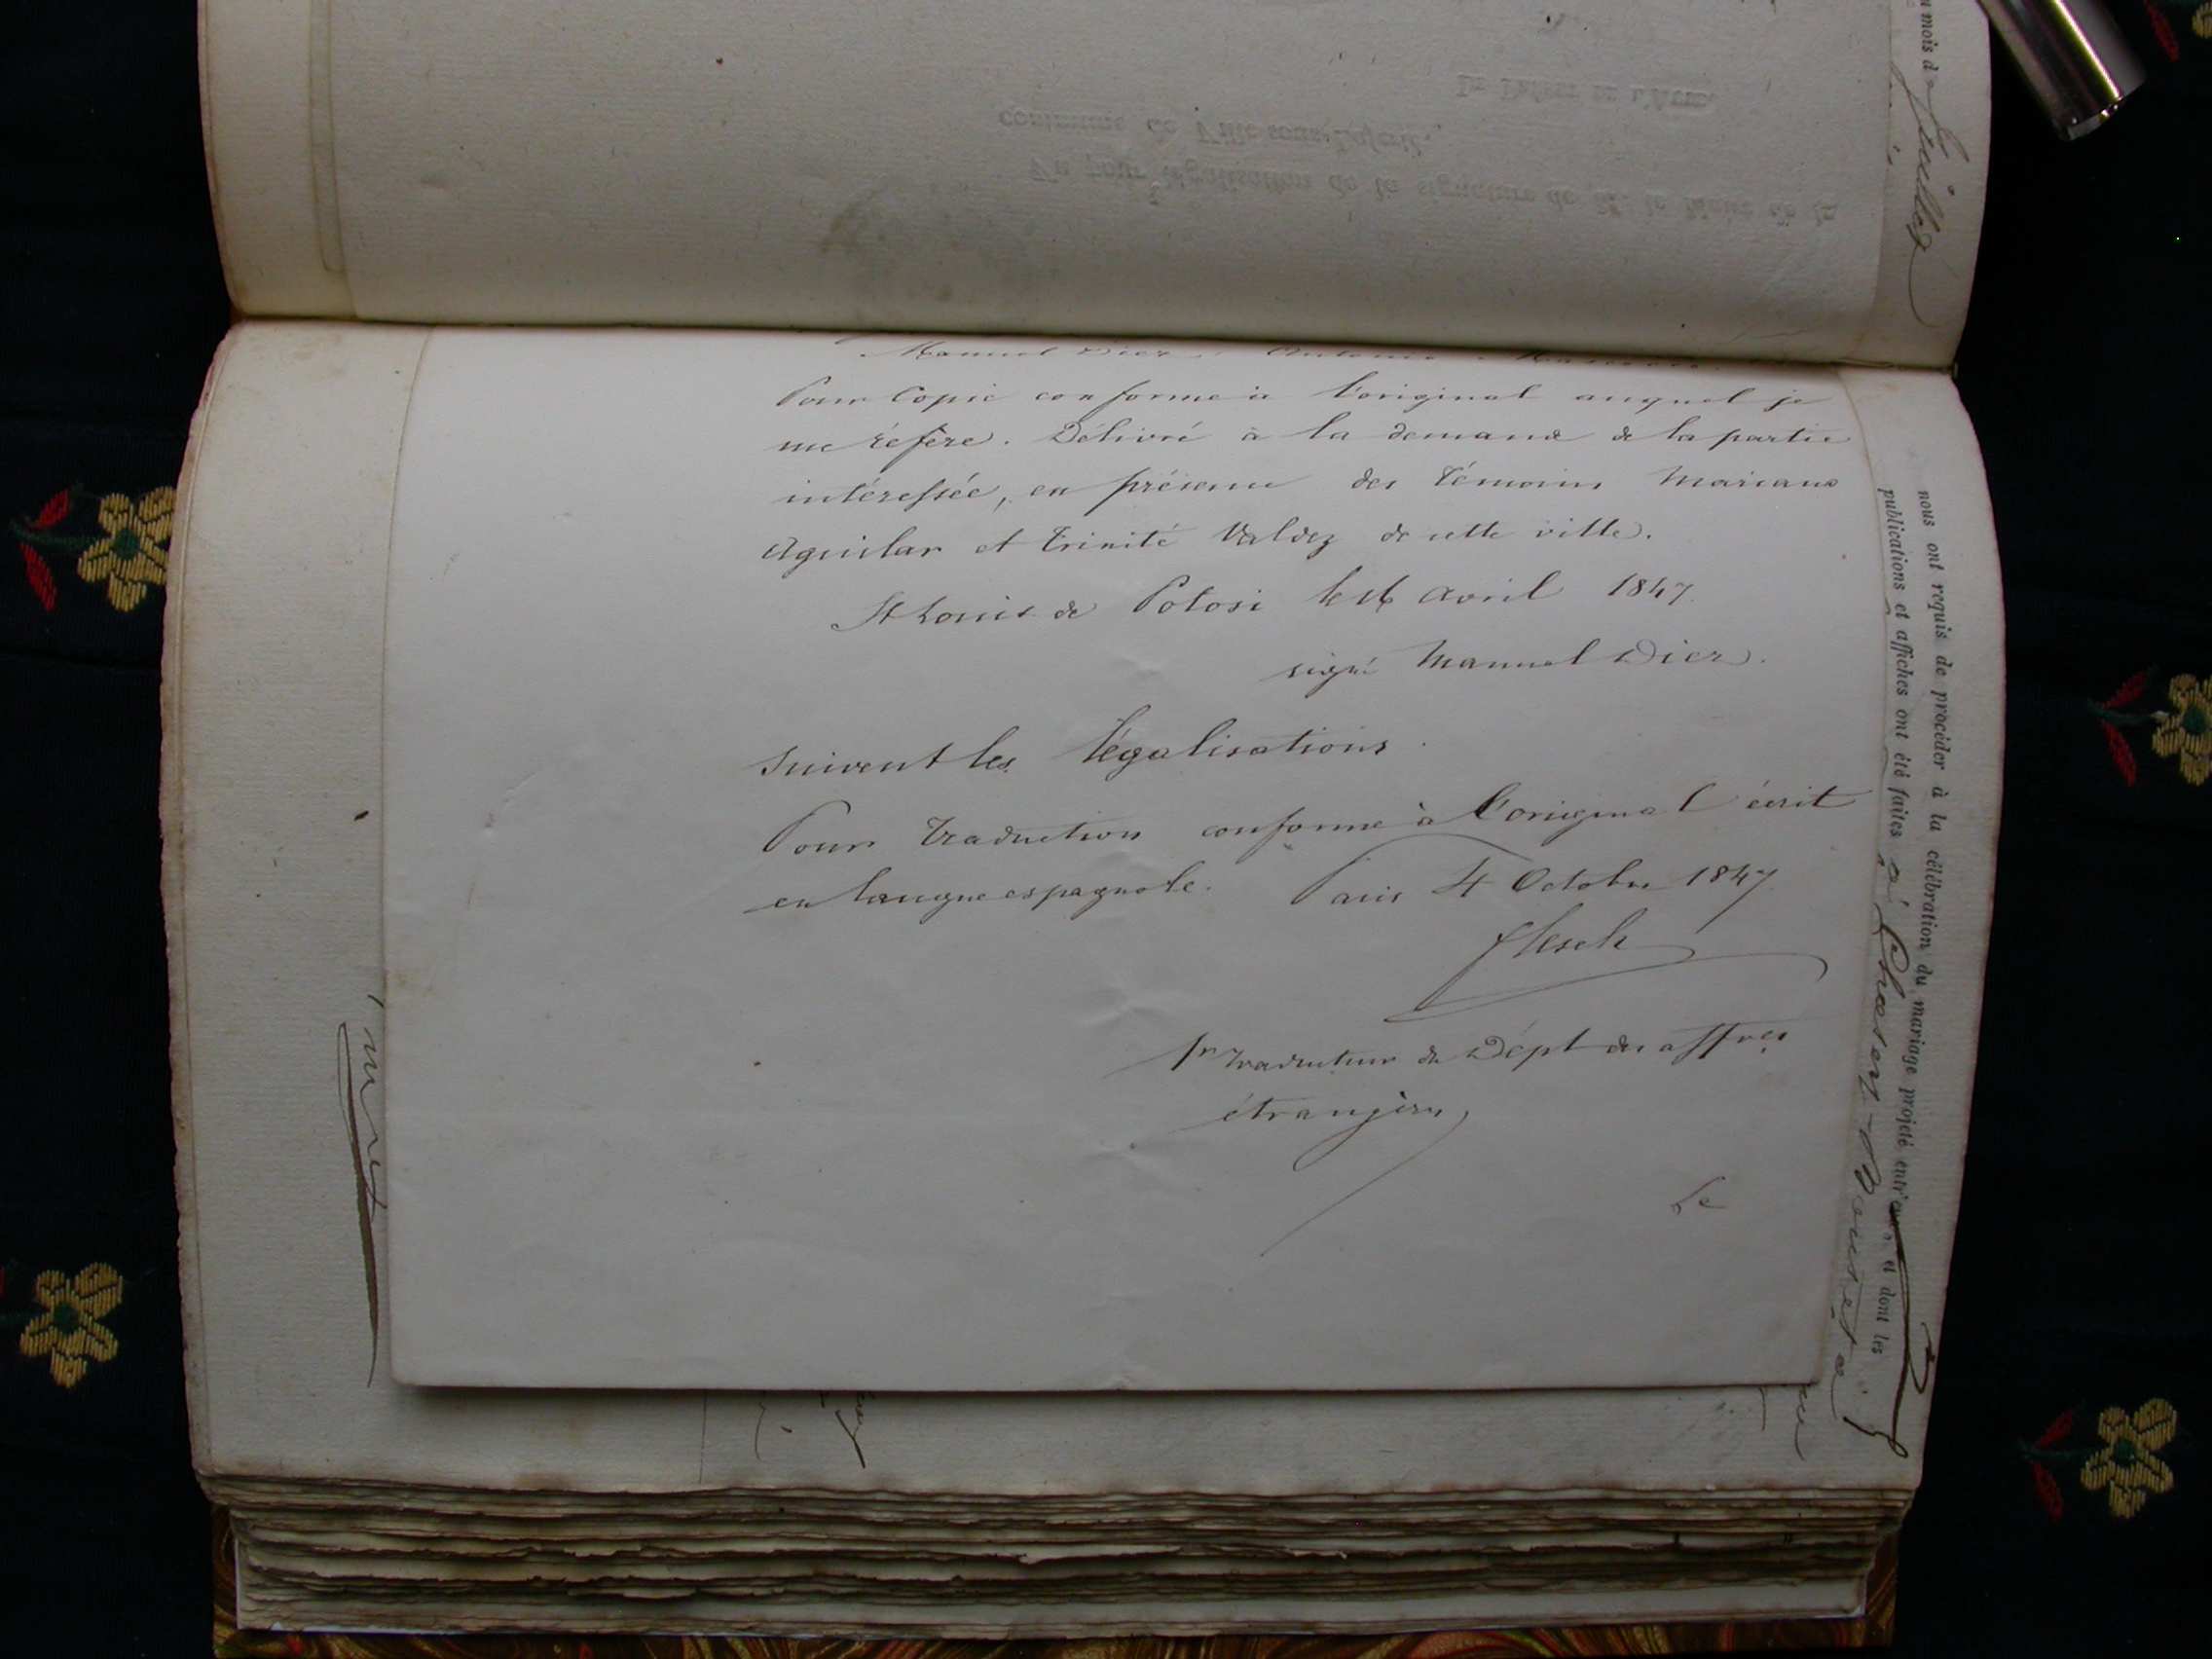 Manuel Diez. Antonio
Pour Copie conforme à l'original auquel je
me réfère. Délivré à la demande de la partie
intéressée, en présence des témoins Mariano
Aguilar et Trinité Valdez de cette ville.
St Louis de Potosi le Avril 1847.
signé Manuel Diez.
Suivent les légalisations.
Pour traduction conforme à l'original écrit
en langue espagnole. Paris 4 Octobre 1847
1r traducteur du Dépt des affres
étrangères
Le
u mois d
nous ont requis de procéder à la célébration du mariage projeté entr'eux et dont les
publications et affiches ont été faites à
Vu pour légalisation de la signature de M. le Maire de la
commune de Ville-sous-Laferté.